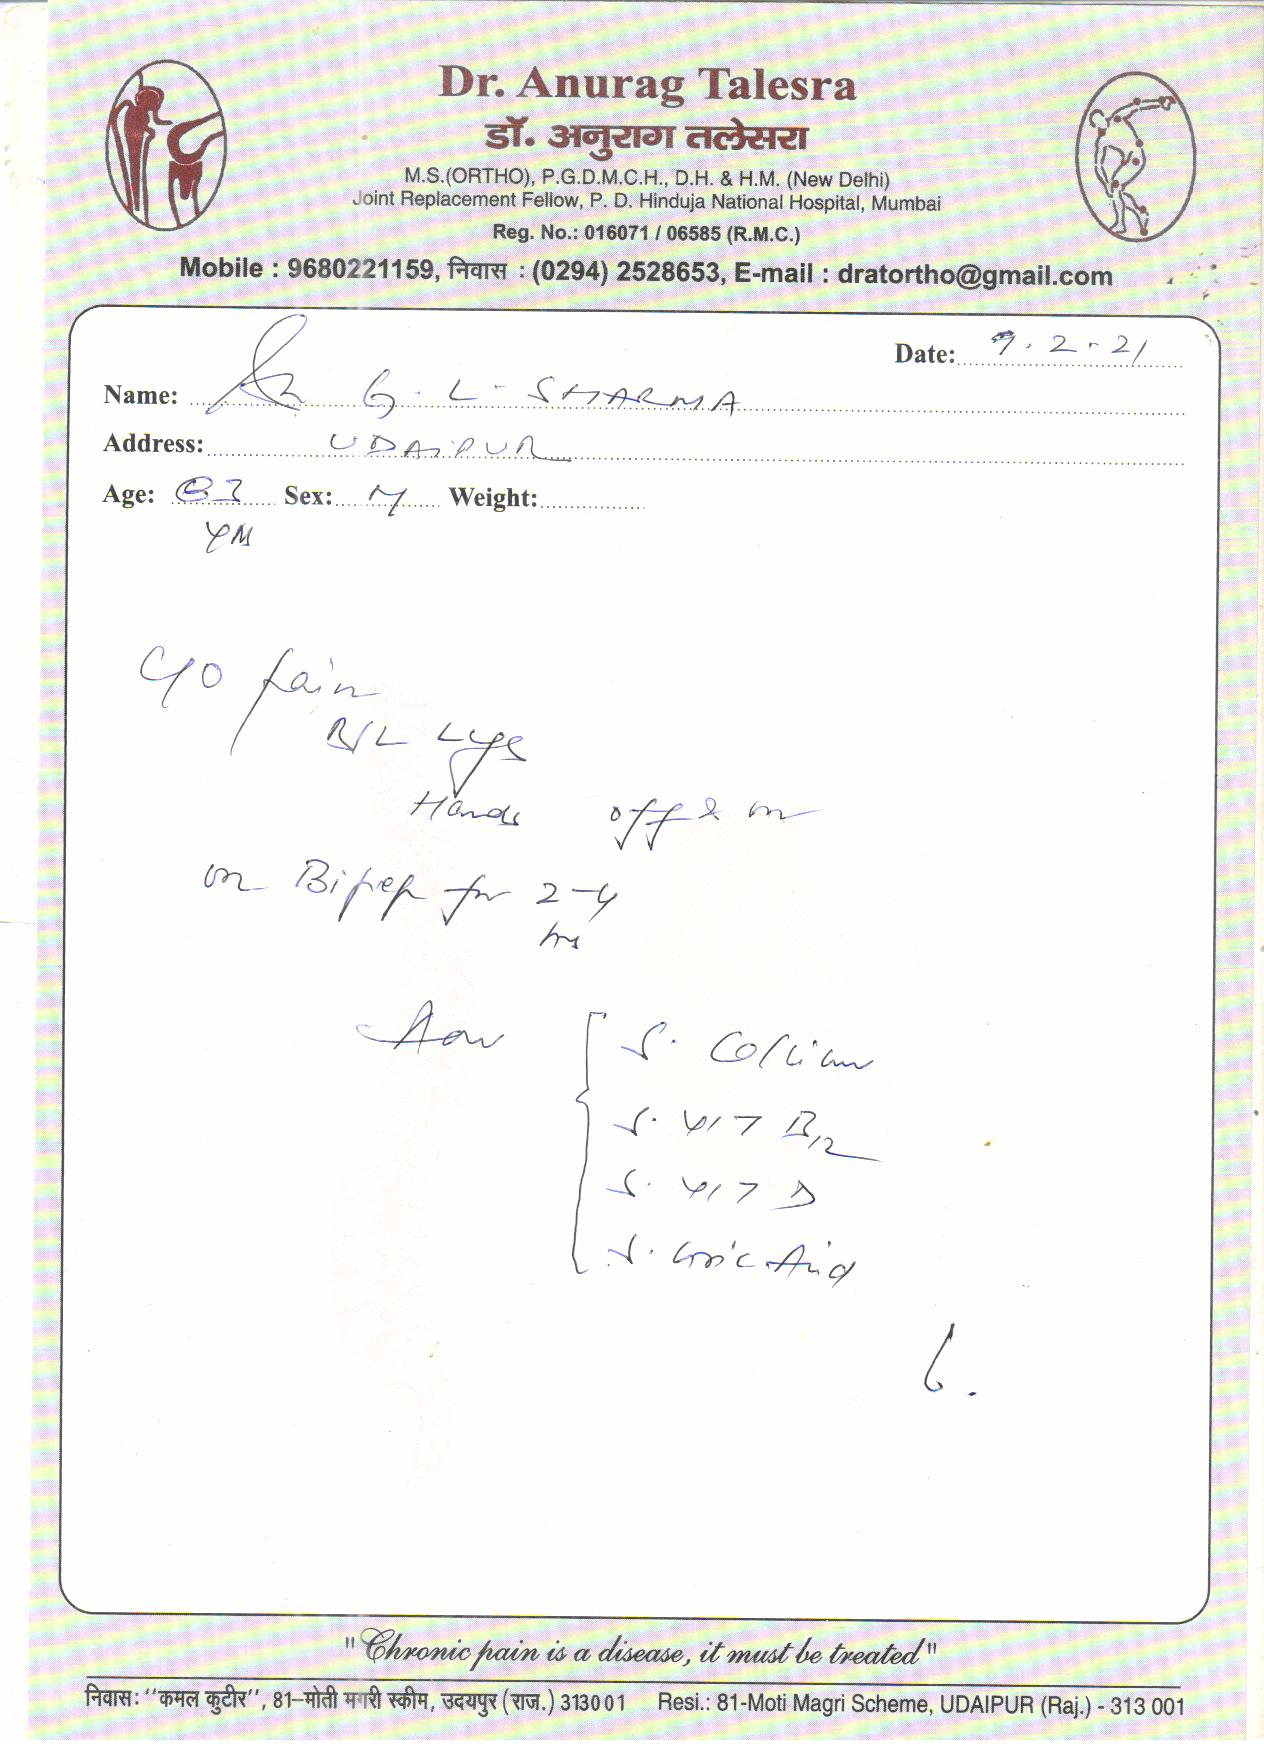 Dr. Anurag Talesra
डॉ. अनुराग तलेसरा
M.S.(ORTHO), P.G.D.M.C.H., D.H. & H.M. (New Delhi)
Joint Replacement Fellow, P. D. Hinduja National Hospital, Mumbai
Reg. No.: 016071 / 06585 (R.M.C.)
Mobile : 9680221159, निवास : (0294) 2528653, E-mail : dratortho@gmail.com
Date: 9.2.21
Name: G. L. SHARMA
Address: UDAIPUR
Age: 83 Sex: M Weight:
C/O Pain
B/L Legs
Hands off & on
on for 2-4
hrs
Adv
S. Calcium
S. VIT B12
S. VIT D
S. Uric Acid
"Chronic pain is a disease, it must be treated"
निवास: "कमल कुटीर", 81–मोती मगरी स्कीम, उदयपुर (राज.) 313001 Resi.: 81-Moti Magri Scheme, UDAIPUR (Raj.) - 313 001